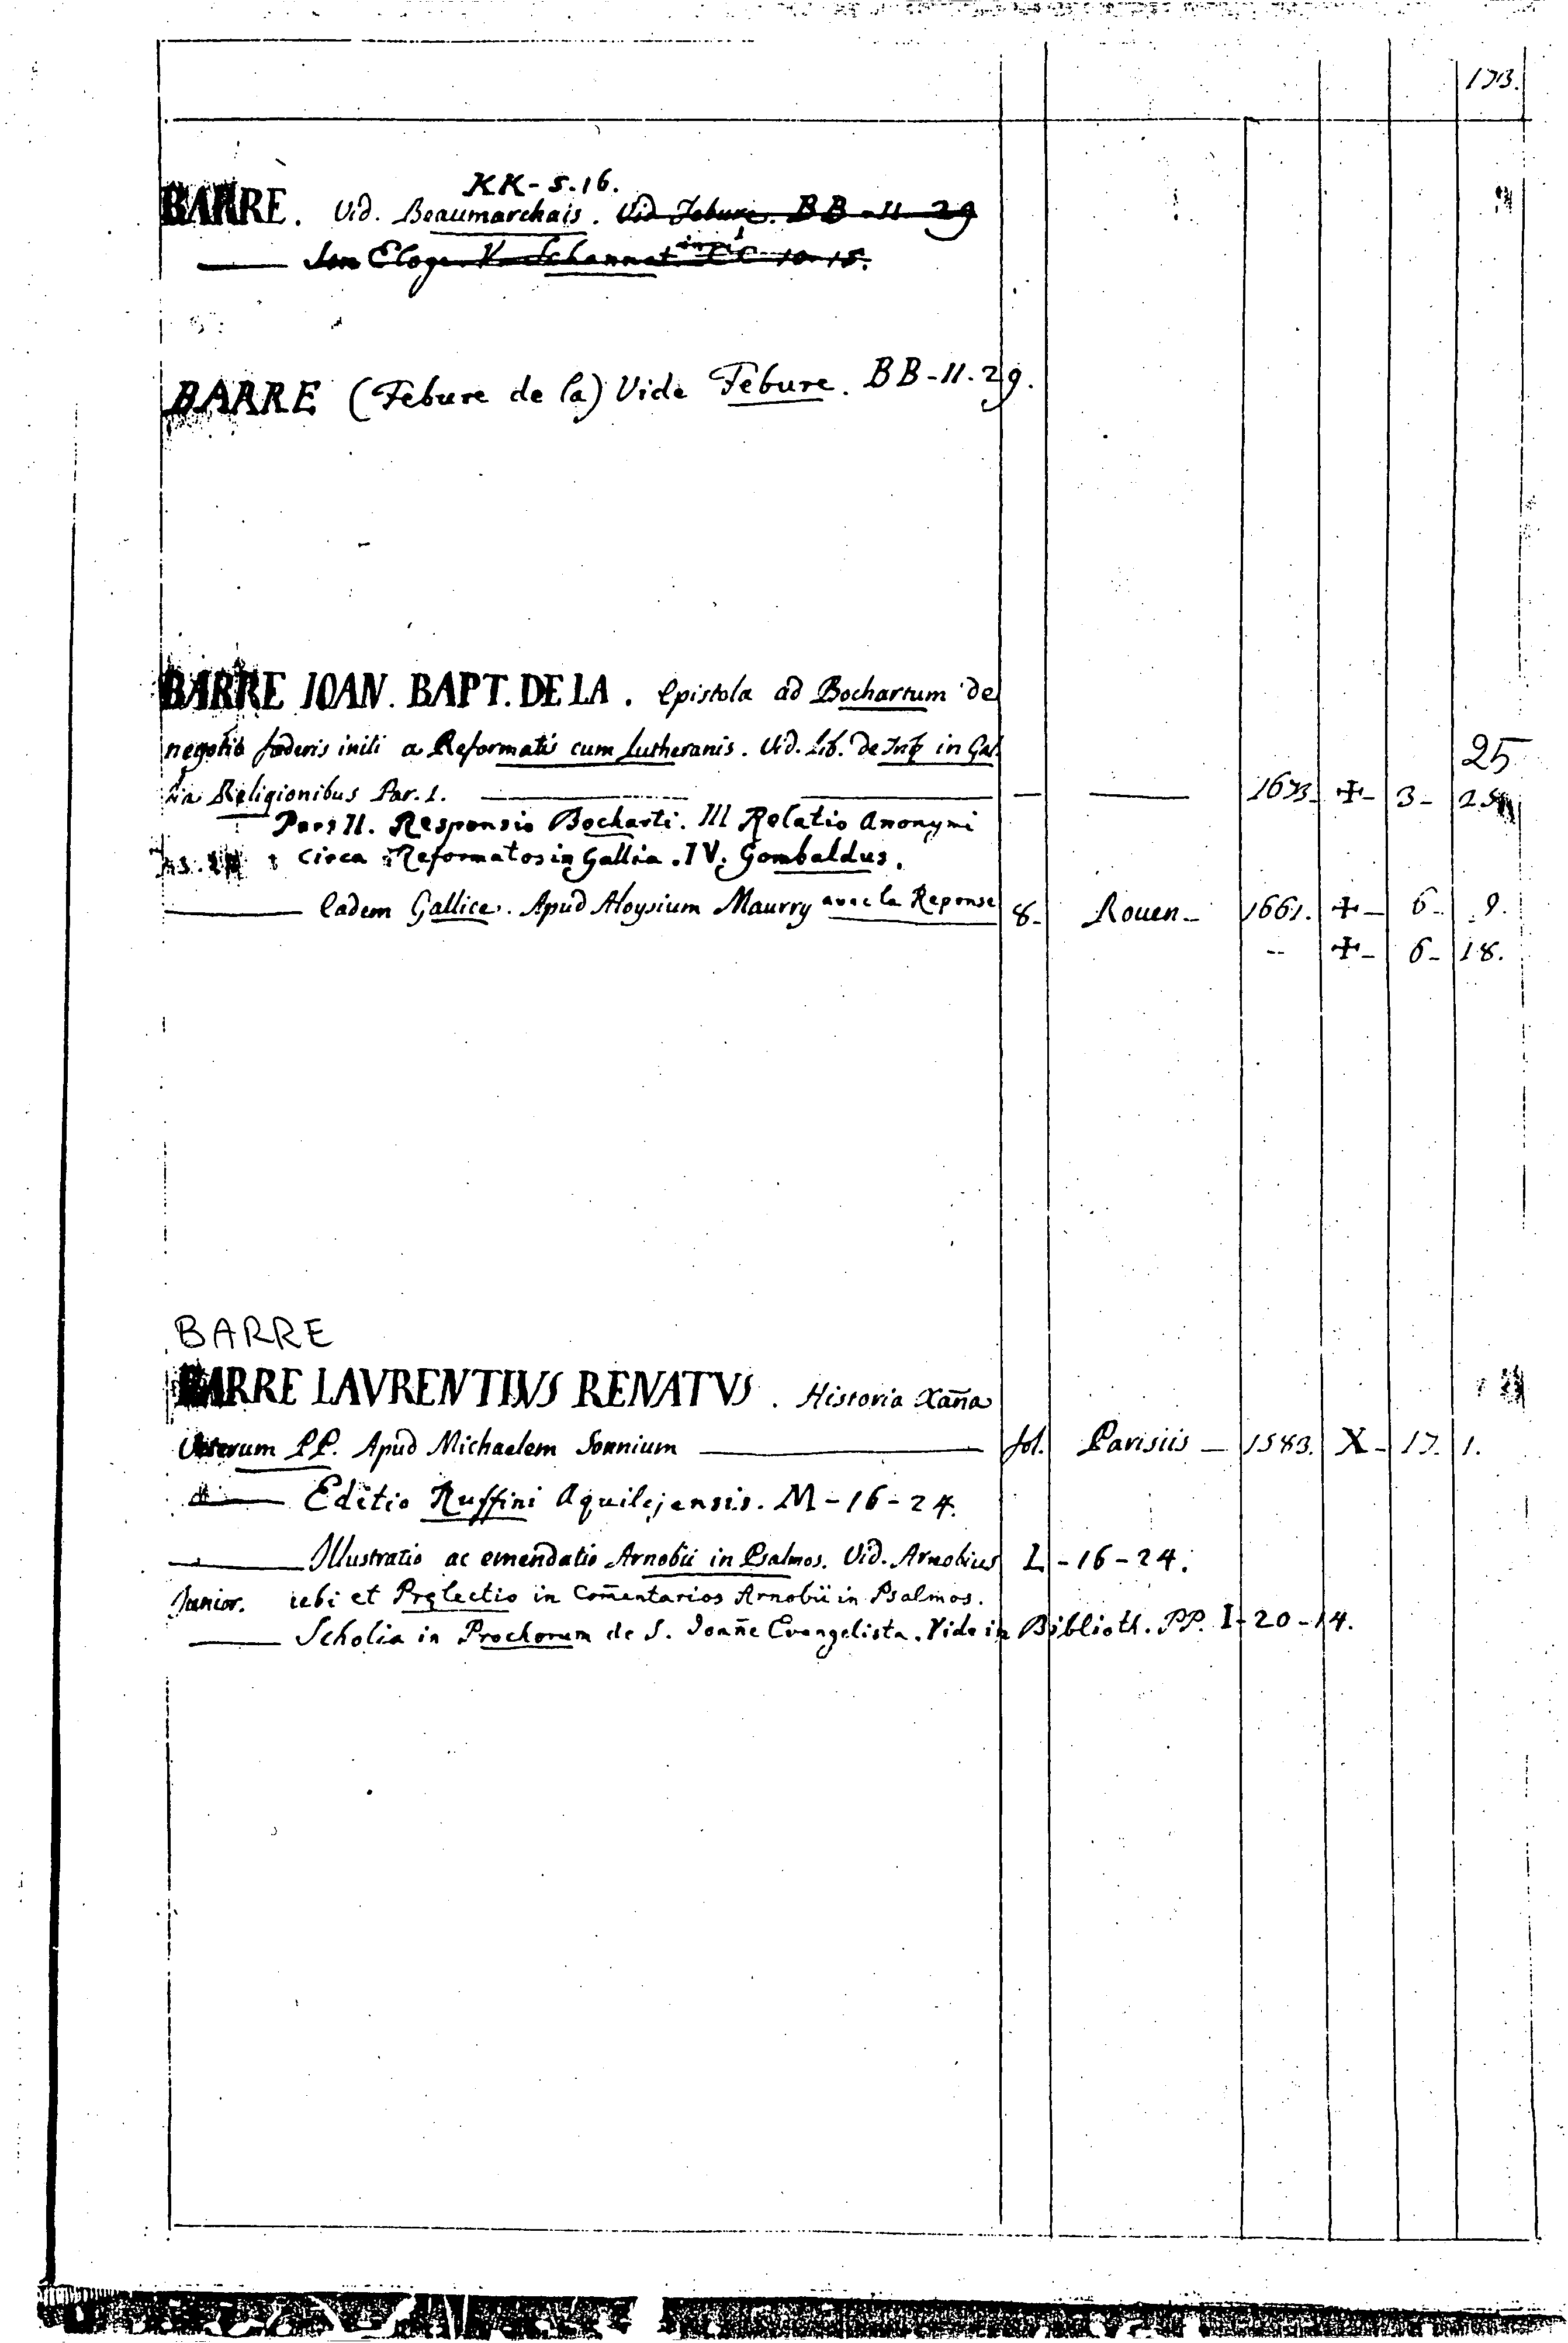 173.
KK-5.16.
BARRE. Vid. Beaumarchais. Vid Febure. BB-11-29
Son Eloge V. Schannat CC 10-15.
BARRE (Febure de la) Vide Febure. BB-11.29.
BARRE IOAN. BAPT. DE LA. Epistola ad Bochartum de
negotio foederis initi a Reformatis cum Lutheranis. Vid. Lib. De in Gal
25
lia Religionibus Par. 1. — — 1673- +- 3-
Pars II. Responsio Bocharti. III Relatio Anonymi
circa Reformatos in Gallia. IV. Gombaldus.
Eadem Gallice. Apud Aloysium Maurry avec la Reponse 8- Rouen- 1661. +- 6- 9.
-- +- 6- 18.
BARRE
BARRE LAVRENTIVS RENATVS. Historia Xaña
Veterum PP. Apud Michaelem Sonnium — fol. Parisiis - 1583. X- 17. 1.
Editio Ruffini Aquilejensis. M-16-24.
Illustratio ac emendatio Arnobii in Psalmos. Vid. Arnobius L-16-24.
Junior. ubi et Pręlectio in Com̃entarios Arnobii in Psalmos.
Scholia in Prochorum de S. Joañe Evangelista. Vide in Biblioth. PP. I-20-14.